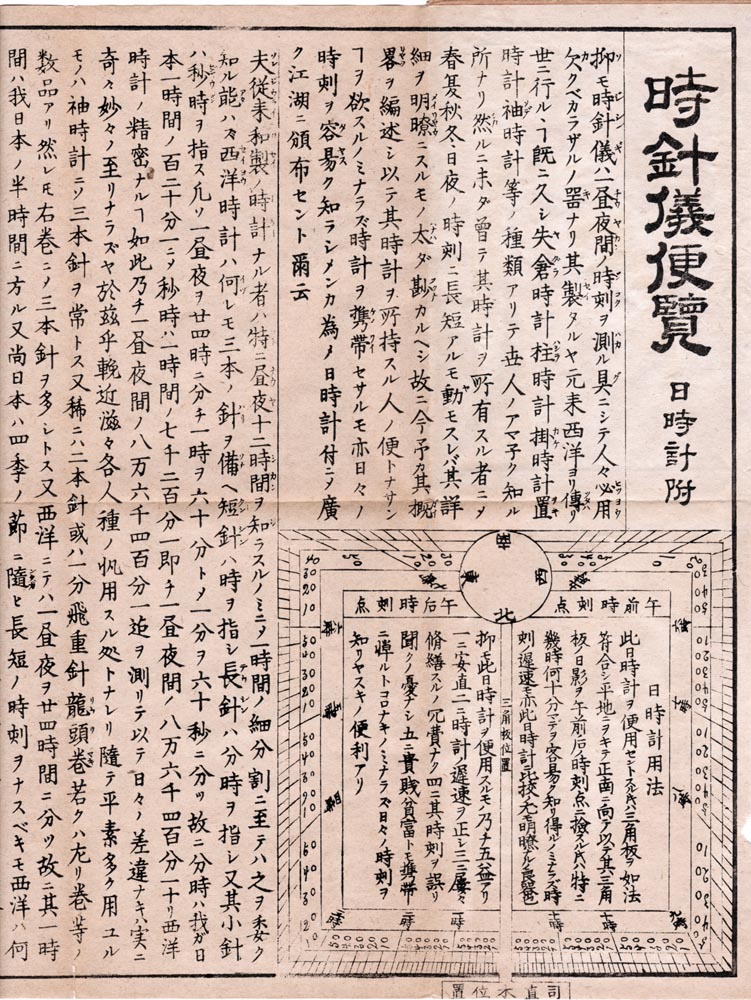 時針儀便覽 日時計附
抑モ時針儀ハ一昼夜間ノ時刻ヲ測ル具ニシテ人々必用
欠クベカラザルノ器ナリ其製タルヤ元来西洋ヨリ傳リ
世ニ行ルヽヿ既ニ久シ矢倉時計柱時計掛時計置
時計袖時計等ノ種類アリテ世人ノアマ子ク知ル
所ナリ然ルニ未ダ曽テ其時計ヲ所有スル者ニメ
春夏秋冬日夜ノ時刻ニ長短アルモ動モスレバ其詳
細ヲ明瞭ニスルモノ太ダ尠カルヘシ故ニ今予カ其概
畧ヲ編述シ以テ其時計ヲ所持スル人ノ便トナサン
ヿヲ欲スルノミナラズ時計ヲ携帯セサルモ亦日々ノ
時刻ヲ容易ク知ラシメンカ為メ日時計付ニメ廣
ク江湖ニ頒布セント爾云
夫従来和製ノ時計ナル者ハ特ニ昼夜十二時間ヲ知ラスルノミニメ一時間ノ細分割ニ至テハ之ヲ委ク
知ル能ハズ西洋時計ハ何レモ三本ノ針ヲ備ヘ短針ハ時ヲ指シ長針ハ分時ヲ指シ又其小針
ハ秒時ヲ指ス凡ソ一昼夜ヲ廿四時ニ分チ一時ヲ六十分トメ一分ヲ六十秒ニ分ツ故ニ二分時ハ我カ日
本一時間ノ百二十分一ニメ秒時ハ一時間ノ七千二百分一即チ一昼夜間ノ八万六千四百分一ナリ西洋
時計ノ精密ナルヿ如此乃チ一昼夜間ノ八万六千四百分一迄ヲ測リテ以テ日々ノ差違ナキハ実ニ
奇々妙々ノ至リナラズヤ於茲乎輓近滋々各人種ノ帆用スル処トナレリ随テ平素多ク用ユル
モノハ袖時計ニメ三本針ヲ常トス又稀ニハ二本針或ハ一分飛重針龍頭巻若クハ左リ巻等ノ
数品アリ然レモ右巻ニメ三本針ヲ多シトス又西洋ニテハ一昼夜ヲ廿四時間ニ分ツ故ニ其一時
間ハ我日本ノ半時間ニ方ル又尚日本ハ四季ノ節ニ隨ヒ長短ノ時刻ヲナスベキモ西洋ハ何
南
東
西
北
午前時刻点
午后時刻点
日時計用法
此日時計ヲ便用セントスル氏ハ三角板ヲ如法
符合シ平地ニヲキテ正南ニ向ケ以テ其三角
板ノ日影ヲ午前后時刻点ニ撿スル氏ハ特ニ
幾時何十分マデヲ容易ク知リ得ルノミナラズ時
三角板位置
抑モ此日時計ヲ便用スルモ乃チ五益アリ
一ニ安直二ニ時計ノ遅速ヲ正シ三ニ屡々
脩繕スルノ冗費ナク四ニ其時刻ヲ誤リ
聞クノ憂ナシ五ニ貴賤貧富トモ携帯
ニ憚ルトコロナキノミナラズ日々ノ時刻ヲ
知リヤスキノ便利アリ
司直木位置